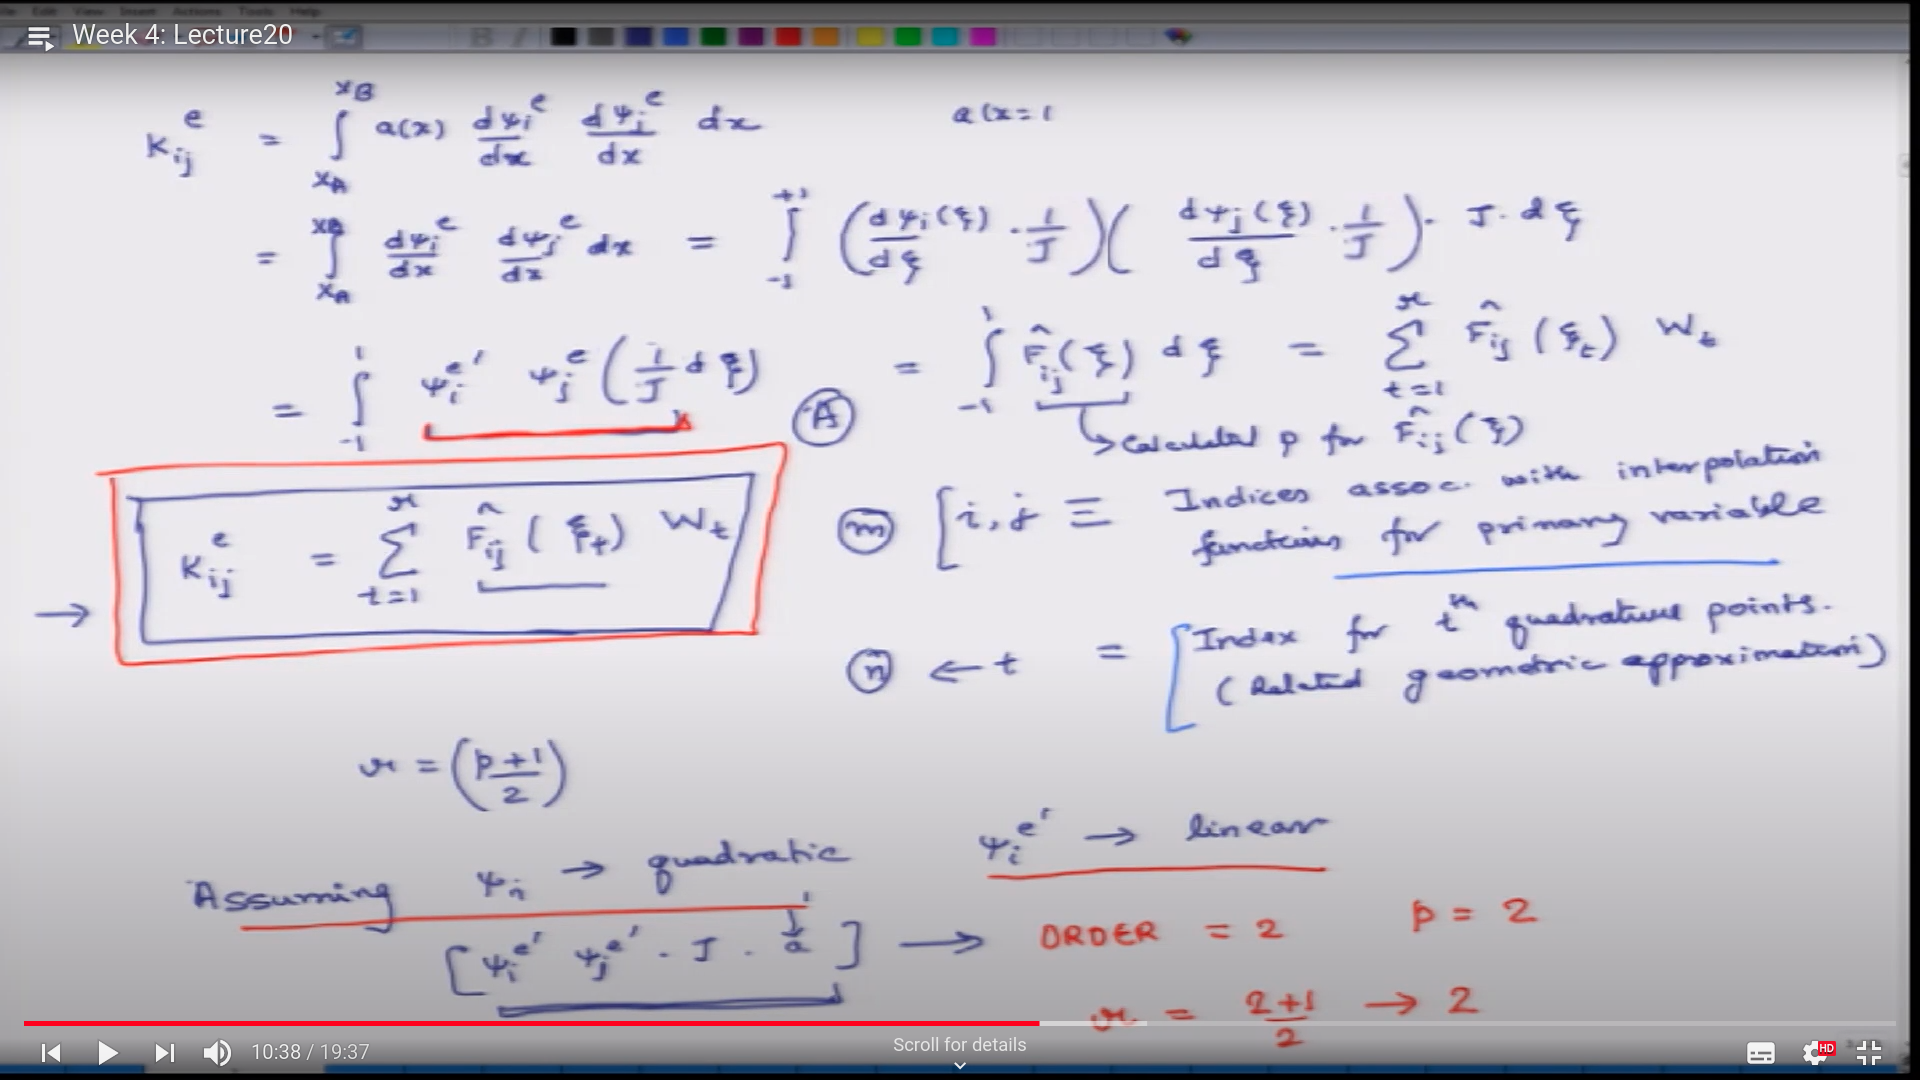 File Edit View Insert Actions Tools Help
Week 4: Lecture20
K_ij^e = ∫_{x_A}^{x_B} a(x) dψ_i^e/dx dψ_j^e/dx dx a(x=1
= ∫_{x_A}^{x_B} dψ_i^e/dx dψ_j^e/dx dx = ∫_{-1}^{+1} (dψ_i(ξ)/dξ · 1/J)(dψ_j(ξ)/dξ · 1/J) · J · dξ
= ∫_{-1}^{1} ψ_i^e' ψ_j^e (1/J dξ) Ⓐ = ∫_{-1}^{1} F̂_ij(ξ) dξ = Σ_{t=1}^{r} F̂_ij(ξ_t) W_t
↳ Calculated p for F̂_ij(ξ)
→ K_ij^e = Σ_{t=1}^{r} F̂_ij(ξ_t) W_t
ⓜ [i, j ≡ Indices assoc. with interpolation
functions for primary variable
ⓝ ← t = [Index for t^th quadrature points.
(Related geometric approximation)
r = (p+1/2)
Assuming ψ_i → quadratic ψ_i^e' → linear
[ψ_i^e' ψ_j^e' · J · a] → ORDER = 2 p = 2
1
r = 2+1/2 → 2
10:38 / 19:37
Scroll for details
HD